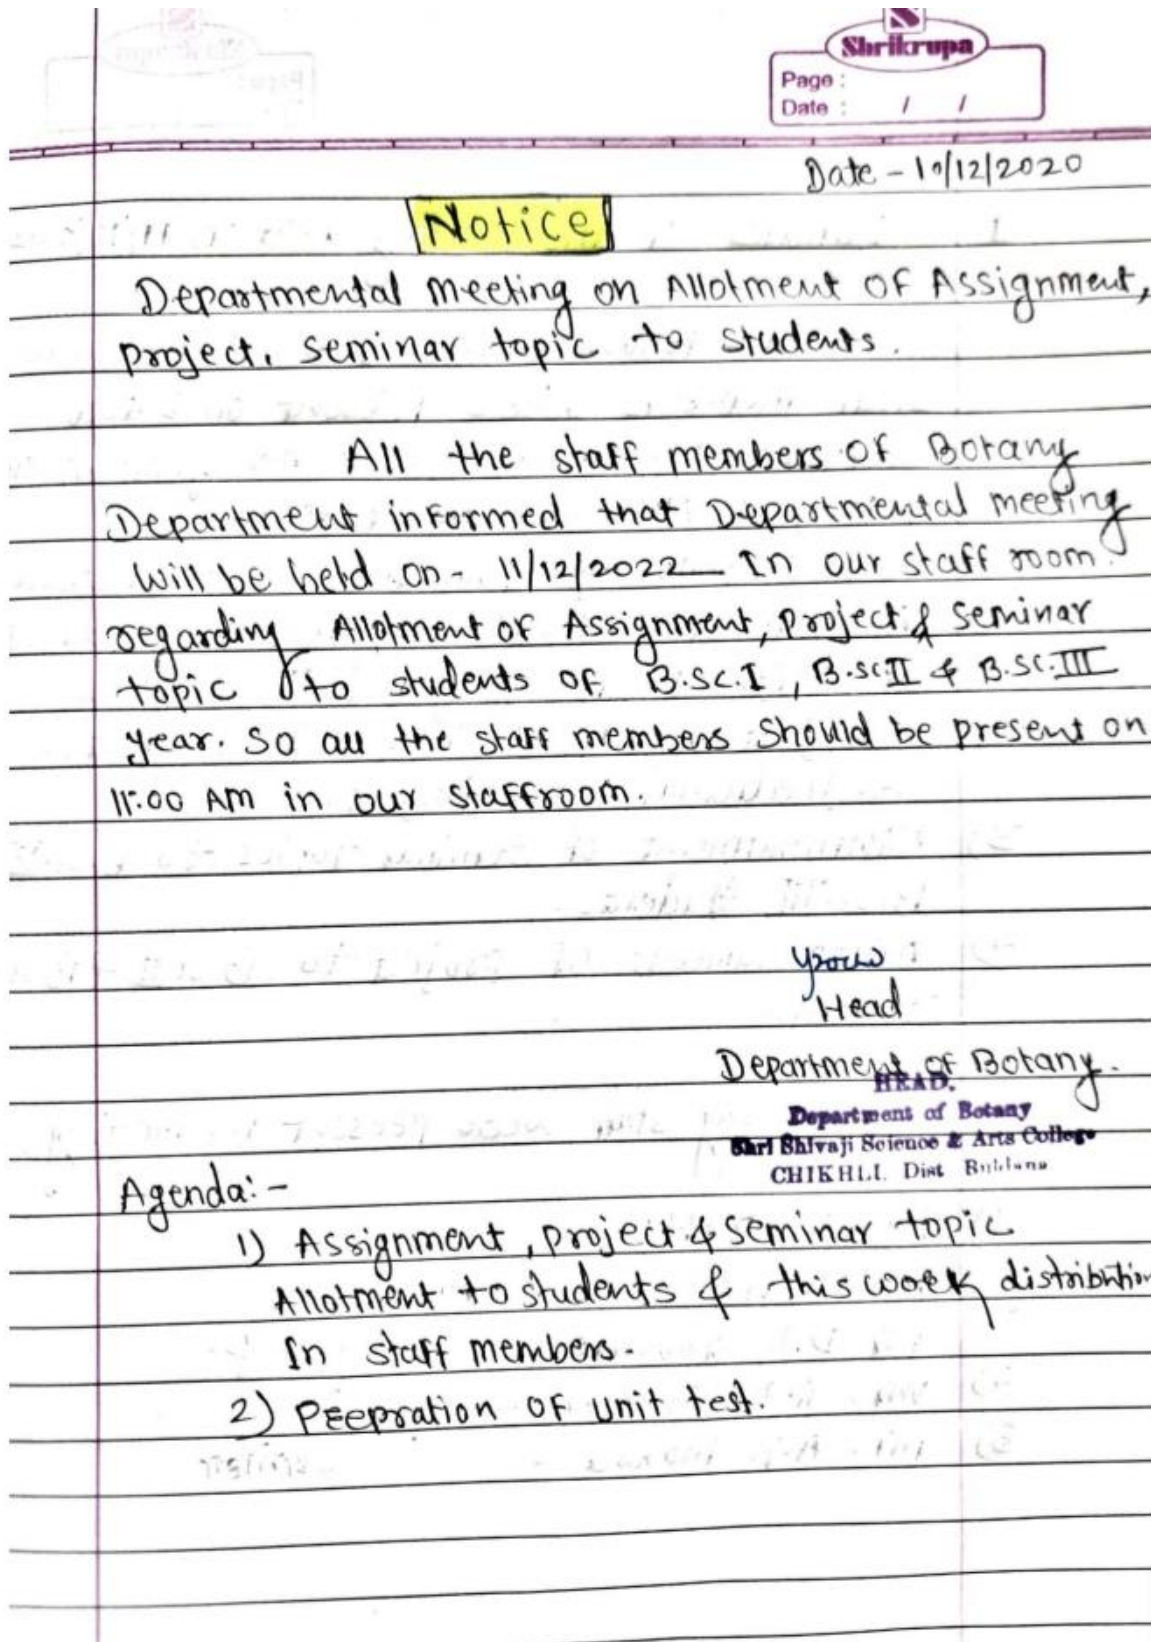 Shrikrupa
Page :
Date : / /
Date - 10/12/2020
Notice
Departmental meeting on Allotment of Assignment,
project, seminar topic to students.
All the staff members of Botany
Department informed that Departmental meeting
will be held on - 11/12/2022 In our staff room.
regarding Allotment of Assignment, project & seminar
topic to students of B.Sc.I, B.Sc.II & B.Sc.III
year. So all the staff members should be present on
11:00 AM in our staffroom.
Head
Department of Botany.
HEAD.
Department of Botany
Shri Shivaji Science & Arts College
CHIKHLI. Dist Buldana
Agenda:-
1) Assignment, project & seminar topic
Allotment to students & this work distribution
In staff members.
2) PEepration of unit test.